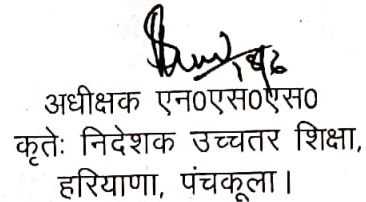 अधीक्षक एन०एस०एस०
कृतेः निदेशक उच्चतर शिक्षा,
हरियाणा, पंचकूला।